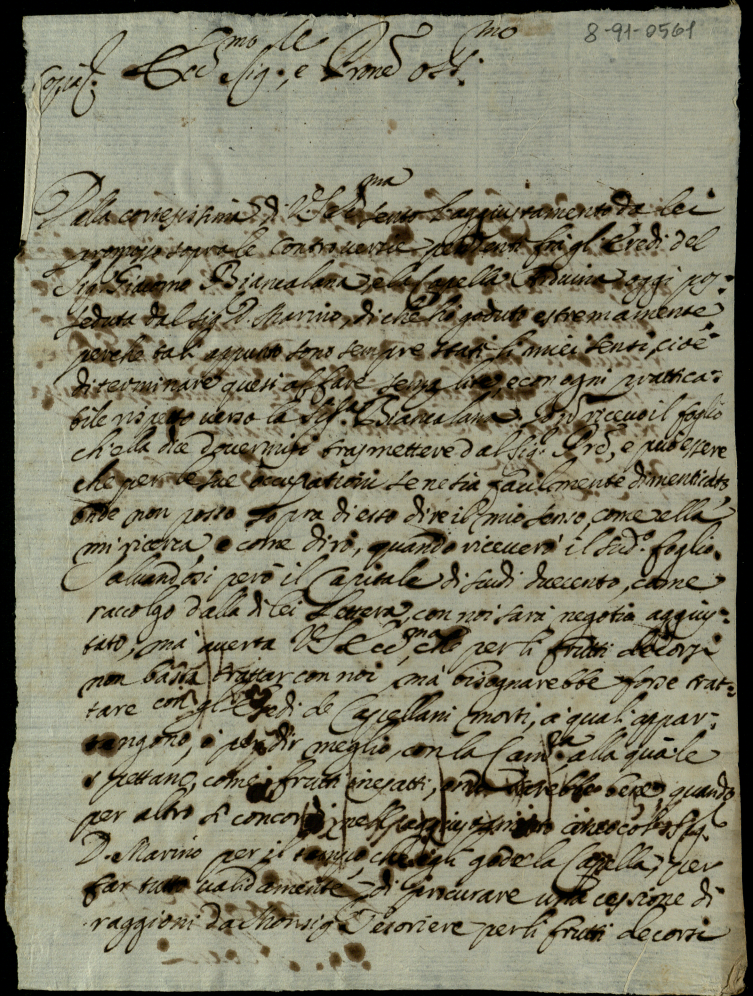 8-91-0561
Copia. Ecc.mo Sig.le, e Prone Oss.mo
Dalla cortesissima di V.S. Ecc.ma sento l'aggiustamento da lei
proposto sopra le controversie pendenti fra gl'Eredi del
Sig.r Giacomo Biancalana, e la Capella Arduina oggi pos-
seduta dal Sig.r D. Marino, di che hò goduto estremamente
perche tali appunto sono sempre stati li miei sensi, cioè
di terminare quest'affare senza lite, e con ogni prattica-
bile rispetto verso la Sig.ra Biancalana. Io non ricevo il foglio
ch'ella dice dovermisi trasmettere dal Sig.r Prõe, e può essere
che per le sue occupationi se ne sia facilmente dimenticato,
onde non posso sopra di esso dire il mio senso, come ella
mi ricerca, e come dirò, quando riceverò il sud.o foglio.
Salvandosi però il Capitale di scudi duecento, come
raccolgo dalla di lei lettera, con noi sarà negotio aggius-
tato, mà averta V.S. Ecc.ma, che per li frutti decorsi
non basta trattar con noi, mà bisognarebbe forse trat-
tare con gl'Eredi de Capellani morti, a quali appar-
tengono, ò per dir meglio, con la Cam.ra alla quale
spettano, come frutti inesatti, onde sarebbe bene, quando
per altro si concordi nell'aggiustamento anco col Sig.r
D. Marino per il tempo che egli gode la Capella, per
far tutto validamente, di procurare una cessione di
raggioni da Monsig.r Tesoriere per li frutti decorsi